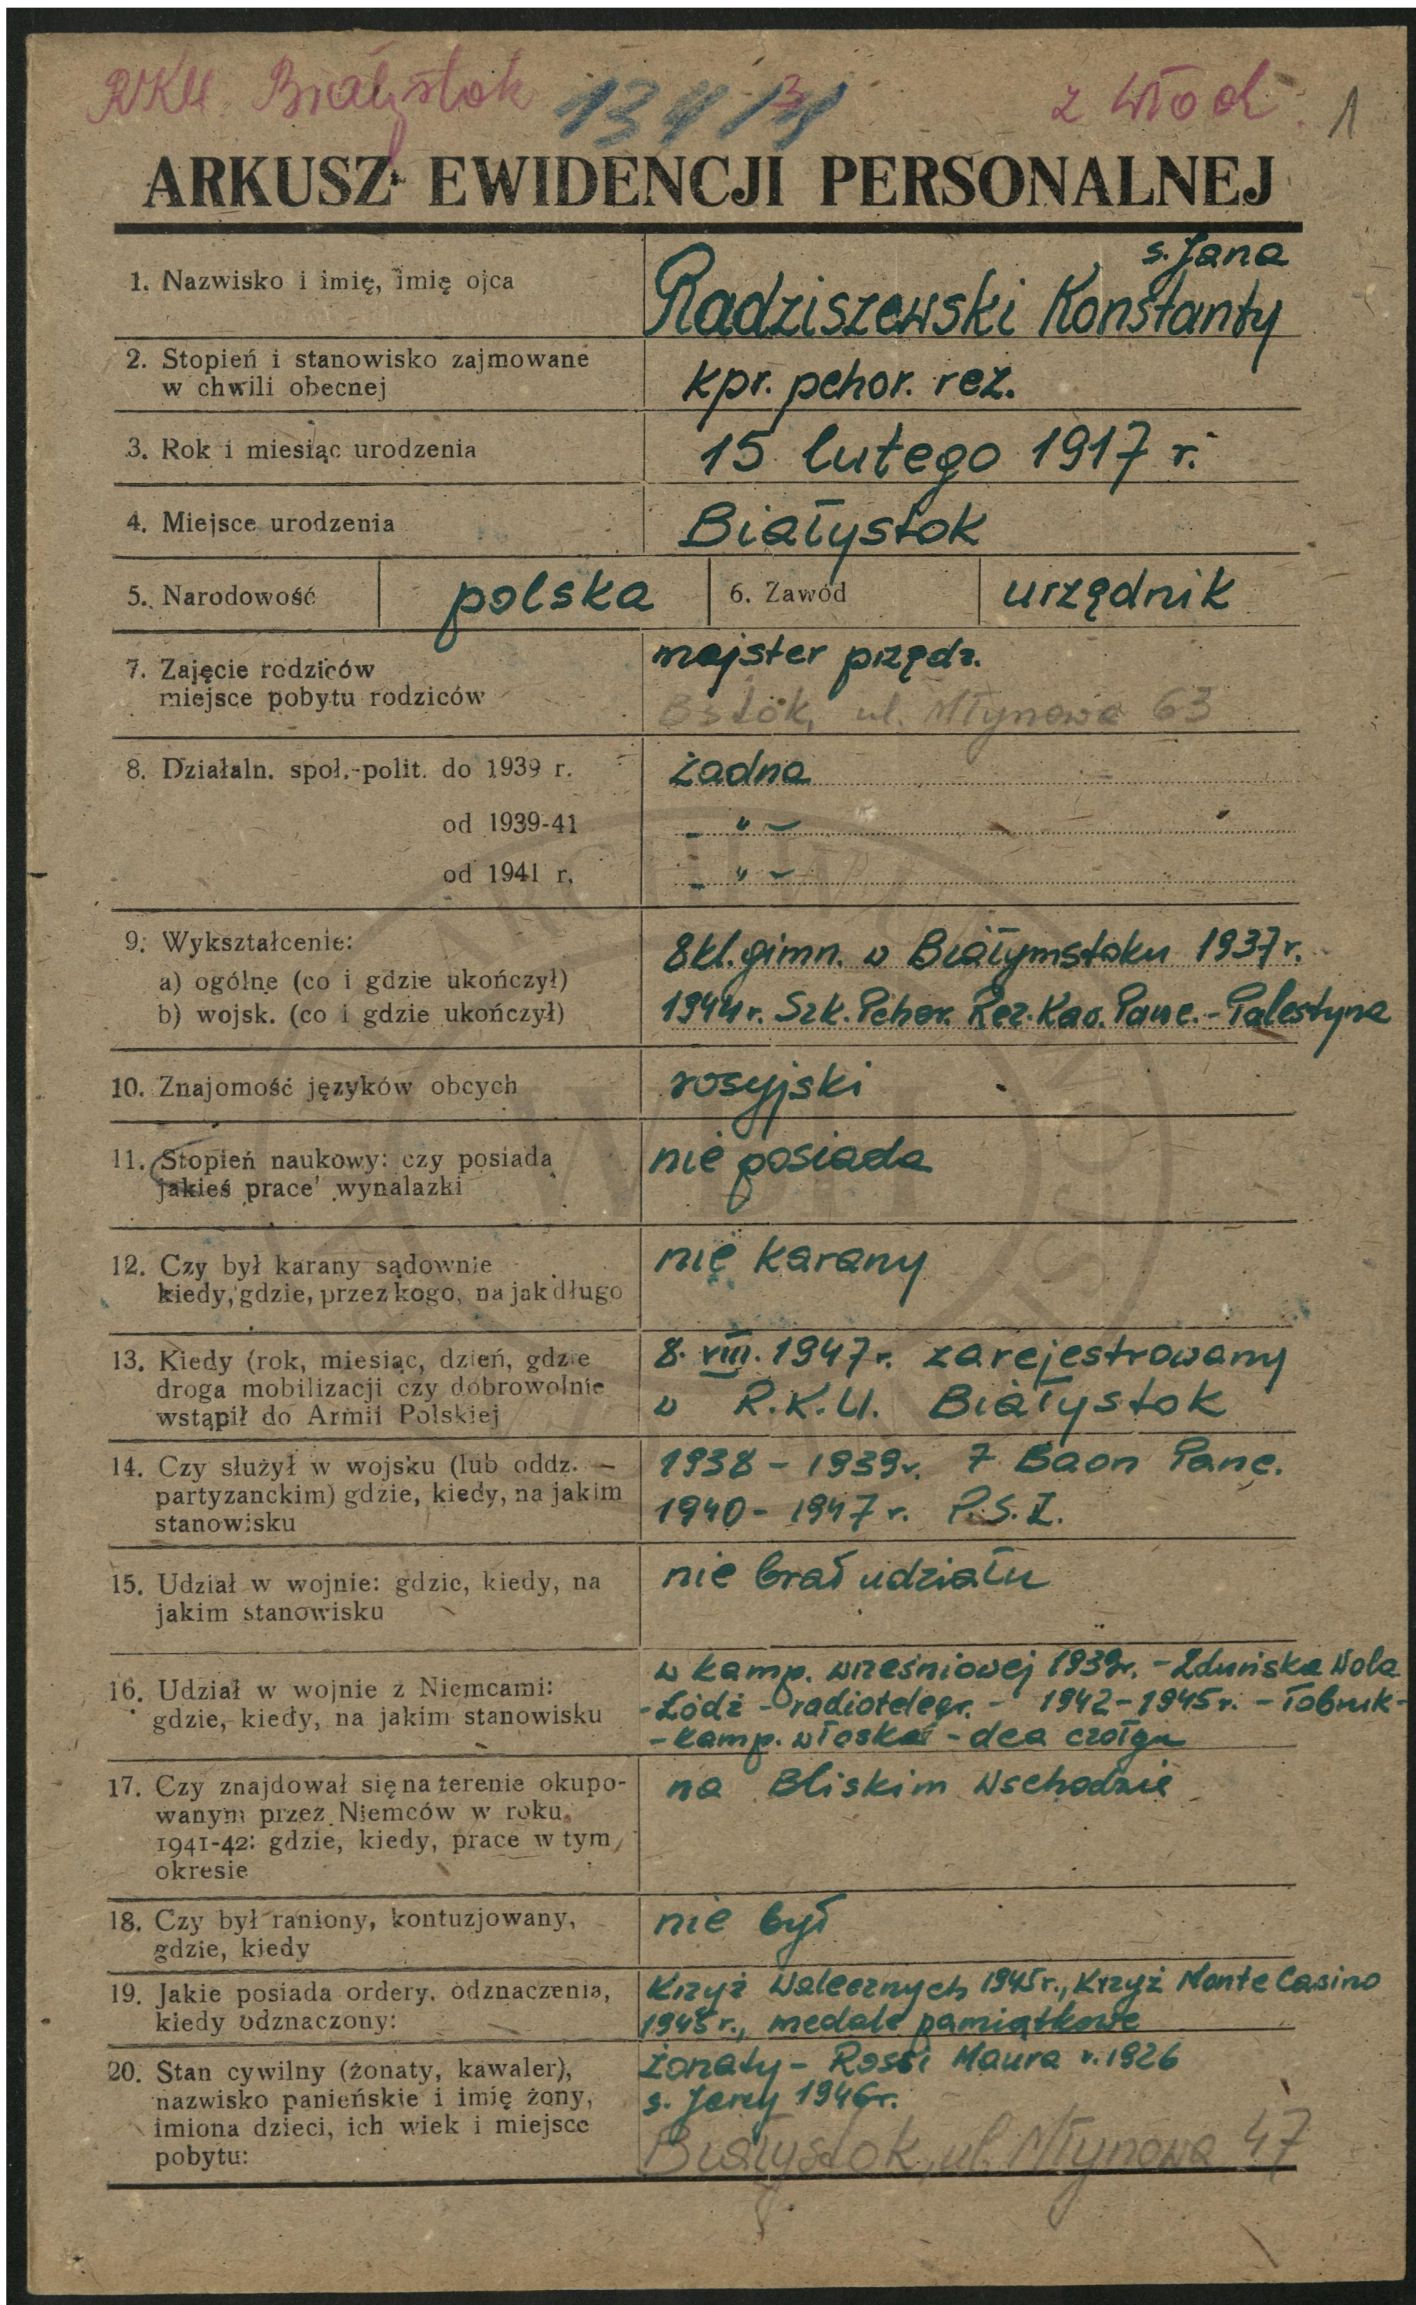 RKU. Białystok z włoch. 1
ARKUSZ EWIDENCJI PERSONALNEJ
1. Nazwisko i imię, imię ojca
s. Jana
Radziszewski Konstanty
2. Stopień i stanowisko zajmowane
w chwili obecnej
kpr. pchor. rez.
3. Rok i miesiąc urodzenia
15 lutego 1917 r.
4. Miejsce urodzenia
Białystok
5. Narodowość polska 6. Zawód urzędnik
7. Zajęcie rodziców
miejsce pobytu rodziców
majster przędz.
Bstok, ul. Młynowa 63
8. Działaln. społ.-polit. do 1939 r. żadna
od 1939-41 - " -
od 1941 r. - " -
9. Wykształcenie:
a) ogólne (co i gdzie ukończył)
b) wojsk. (co i gdzie ukończył)
8 kl. gimn. w Białymstoku 1937 r.
1944 r. Szk. Pchor. Rez. Kaw. Panc. - Palestyna
10. Znajomość języków obcych
rosyjski
11. Stopień naukowy: czy posiada
jakieś prace' wynalazki
nie posiada
12. Czy był karany sądownie
kiedy, gdzie, przez kogo, na jak długo
nie karany
13. Kiedy (rok, miesiąc, dzień, gdzie
droga mobilizacji czy dobrowolnie
wstąpił do Armii Polskiej
8. VIII. 1947 r. zarejestrowany
w R.K.U. Białystok
14. Czy służył w wojsku (lub oddz. —
partyzanckim) gdzie, kiedy, na jakim
stanowisku
1938 - 1939 r. 7 Baon Panc.
1940 - 1947 r. P.S.Z.
15. Udział w wojnie: gdzie, kiedy, na
jakim stanowisku
nie brał udziału
16. Udział w wojnie z Niemcami:
gdzie, kiedy, na jakim stanowisku
w kamp. wrześniowej 1939 r. - Zduńska Wola
- Łódź - radiotelegr. - 1942 - 1945 r. - Tobruk -
- kamp. włoska - dca czołgu
17. Czy znajdował się na terenie okupo-
wanym przez Niemców w roku
1941-42: gdzie, kiedy, prace w tym
okresie
na Bliskim Wschodzie
18. Czy był raniony, kontuzjowany,
gdzie, kiedy
nie był
19. Jakie posiada ordery, odznaczenia,
kiedy odznaczony:
Krzyż Walecznych 1945 r., Krzyż Monte Casino
1945 r., medale pamiątkowe
20. Stan cywilny (żonaty, kawaler),
nazwisko panieńskie i imię żony,
imiona dzieci, ich wiek i miejsce
pobytu:
żonaty - Rossi Maura r. 1926
s. Jerzy 1946 r.
Białystok, ul. Młynowa 47